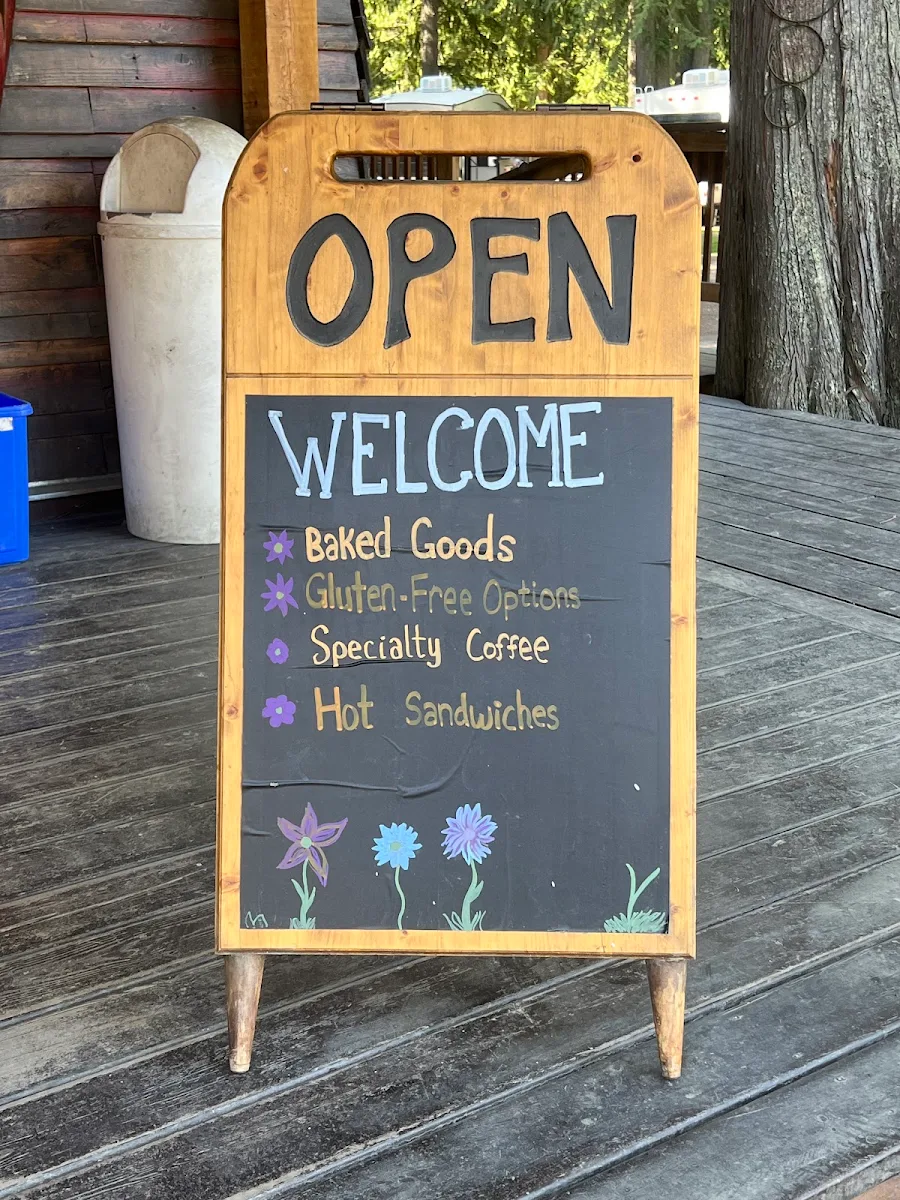 OPEN
WELCOME
Baked Goods
Gluten-Free Options
Specialty Coffee
Hot Sandwiches